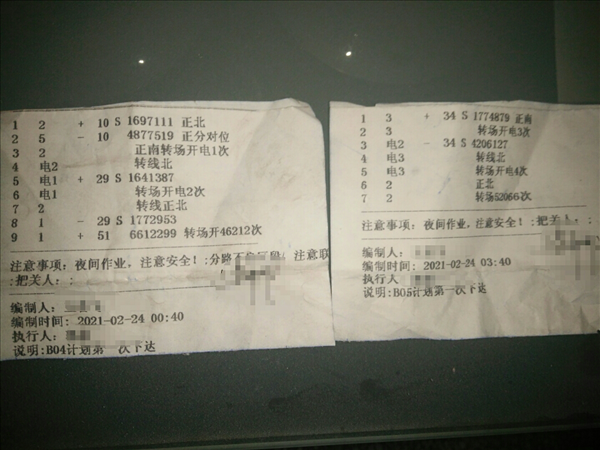 1 2 + 10 S 1697111 正北
2 5 - 10 4877519 正分对位
3 2 正南转场开电1次
4 电2 转线北
5 电1 + 29 S 1641387
6 电1 转场开电2次
7 2 转线正北
8 1 - 29 S 1772953
9 1 + 51 6612299 转场开46212次
注意事项: 夜间作业, 注意安全! :分路不 注意联
:把关人: :
编制人:
编制时间: 2021-02-24 00:40
执行人:
说明:B04计划第一次下达
1 3 + 34 S 1774879 正南
2 3 转场开电3次
3 电2 - 34 S 4206127
4 电3 转线北
5 电3 转场开电4次
6 2 正北
7 2 转场52066次
注意事项: 夜间作业, 注意安全! :把关人:
编制人:
编制时间: 2021-02-24 03:40
执行人:
说明:B05计划第一次下达